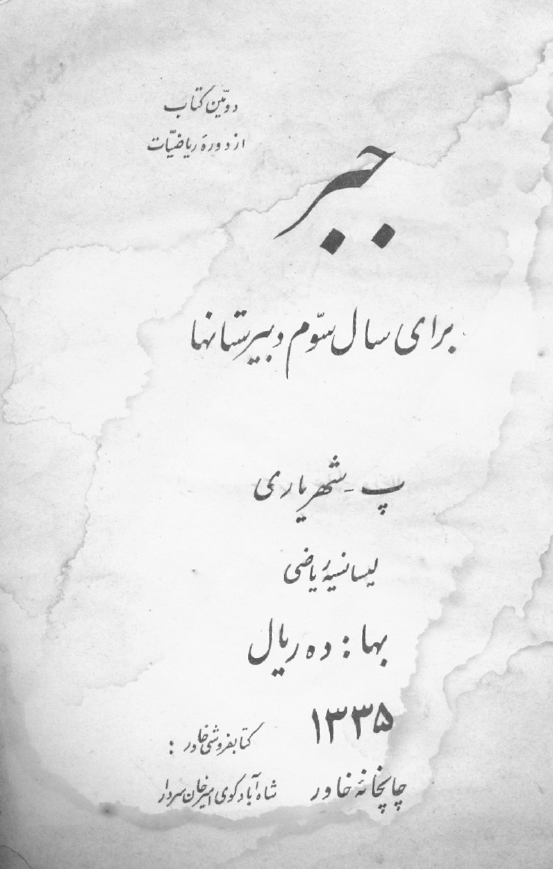 دوّمین کتاب
از دورهٔ ریاضیّات
جبر
برای سال سوّم دبیرستانها
پ - شهریاری
لیسانسیه ریاضی
بها : ده ریال
۱۳۳۵
کتابفروشی خاور :
چاپخانهٔ خاور
شاه آباد کوی امیرخان سردار